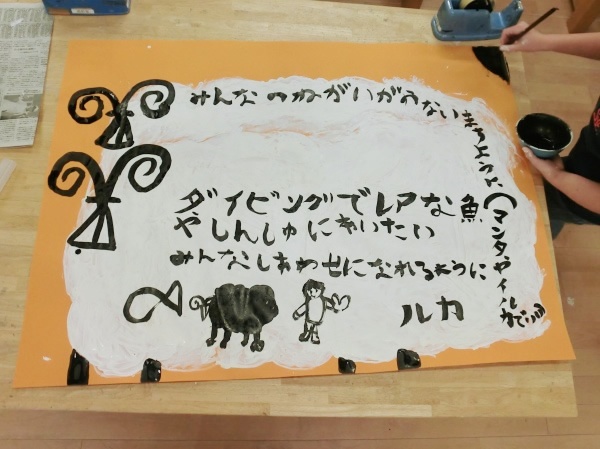 みんなのねがいがかないますように
ダイビングでレアな魚(マンタやイルカでいい)
やしんしゅにあいたい
みんなしあわせになれるように
ルカ